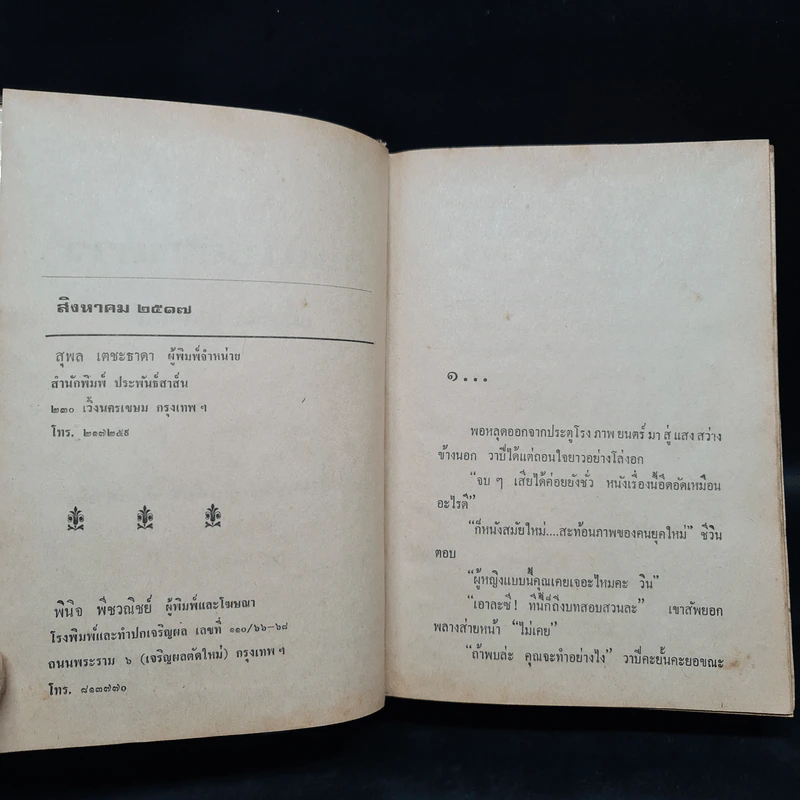 สิงหาคม ๒๕๑๗
สุพล เตชะธาดา ผู้พิมพ์จำหน่าย
สำนักพิมพ์ ประพันธ์สาส์น
๒๓๐ เวิ้งนครเขษม กรุงเทพ ฯ
โทร. ๒๑๗๒๕๙
พินิจ พืชวณิชย์ ผู้พิมพ์และโฆษณา
โรงพิมพ์และทำปกเจริญผล เลขที่ ๑๑๐/๖๖-๖๘
ถนนพระราม ๖ (เจริญผลตัดใหม่) กรุงเทพ ฯ
โทร. ๘๑๓๗๗๐
๑...
พอหลุดออกจากประตูโรง ภาพ ยนตร์ มา สู่ แสง สว่าง
ข้างนอก วาปีได้แต่ถอนใจยาวอย่างโล่งอก
“จบ ๆ เสียได้ค่อยยังชั่ว หนังเรื่องนี้อึดอัดเหมือน
อะไรดี”
“ก็หนังสมัยใหม่....สะท้อนภาพของคนยุคใหม่” ชีวิน
ตอบ
“ผู้หญิงแบบนี้คุณเคยเจอะไหมคะ วิน”
“เอาละซี! ทีนี้ก็ถึงบทสอบสวนละ” เขาสัพยอก
พลางส่ายหน้า “ไม่เคย”
“ถ้าพบล่ะ คุณจะทำอย่างไง” วาปีคะยั้นคะยอขณะ